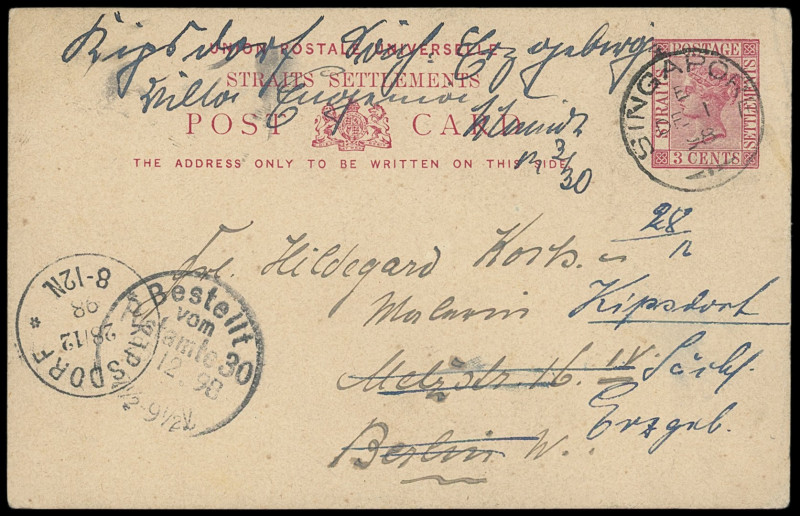 Kipsdorf Sächs. Erzgebirge
UNION POSTALE UNIVERSELLE
STRAITS SETTLEMENTS
Villa
POST CARD
Schmidt
THE ADDRESS ONLY TO BE WRITTEN ON THIS SIDE
2/30
POSTAGE
STRAITS SETTLEMENTS
3 CENTS
SINGAPORE
28/12
Frl. Hildegard
Malerin Kipsdorf
Metzstr. 16. IV. Sächs.
Berlin W. Erzgeb.
Bestellt
vom
Postamte 30
12. 98
1/2-9 1/2 V
KIPSDORF *
28/12
98
8-12N